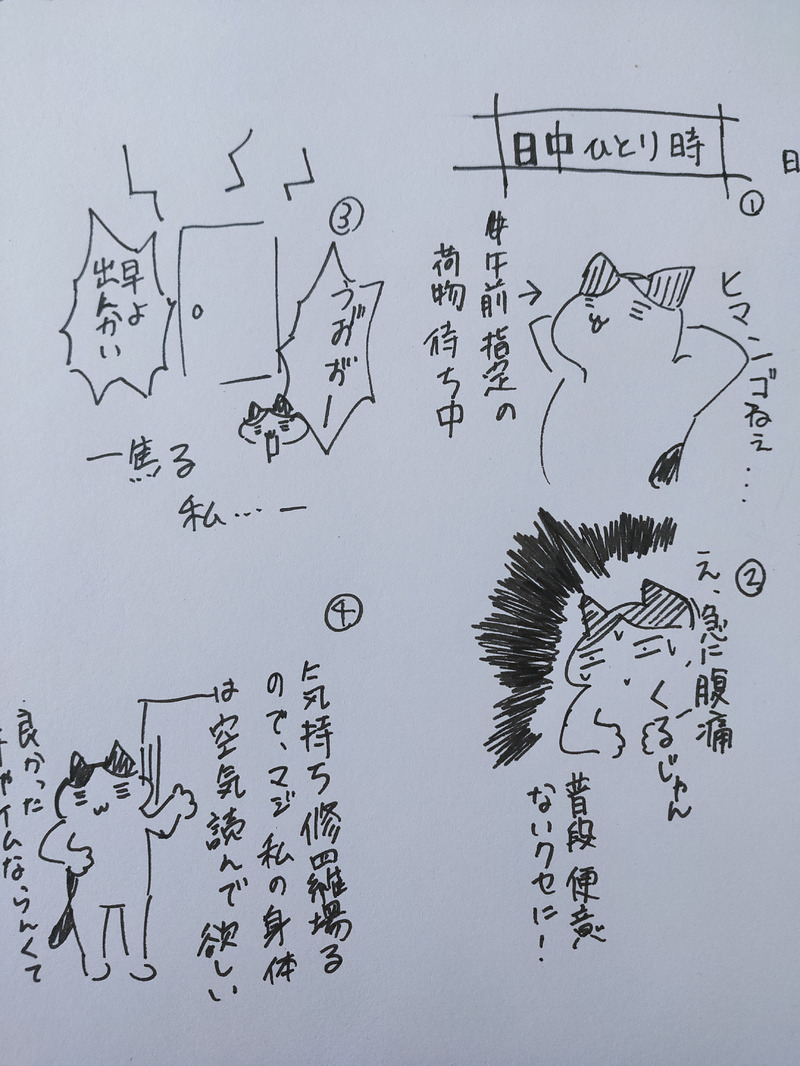 日中ひとり時
日
①
ヒマンゴねぇ…
午前指定の
荷物待ち中
②
え、急に腹痛
くるじゃん
普段便意
ないクセに！
③
うおおー
早よ
出んかい
ー焦る
私…ー
④
気持ち修羅場る
ので、マジ私の身体
は空気読んで欲しい
良かった
チャイムならんくて